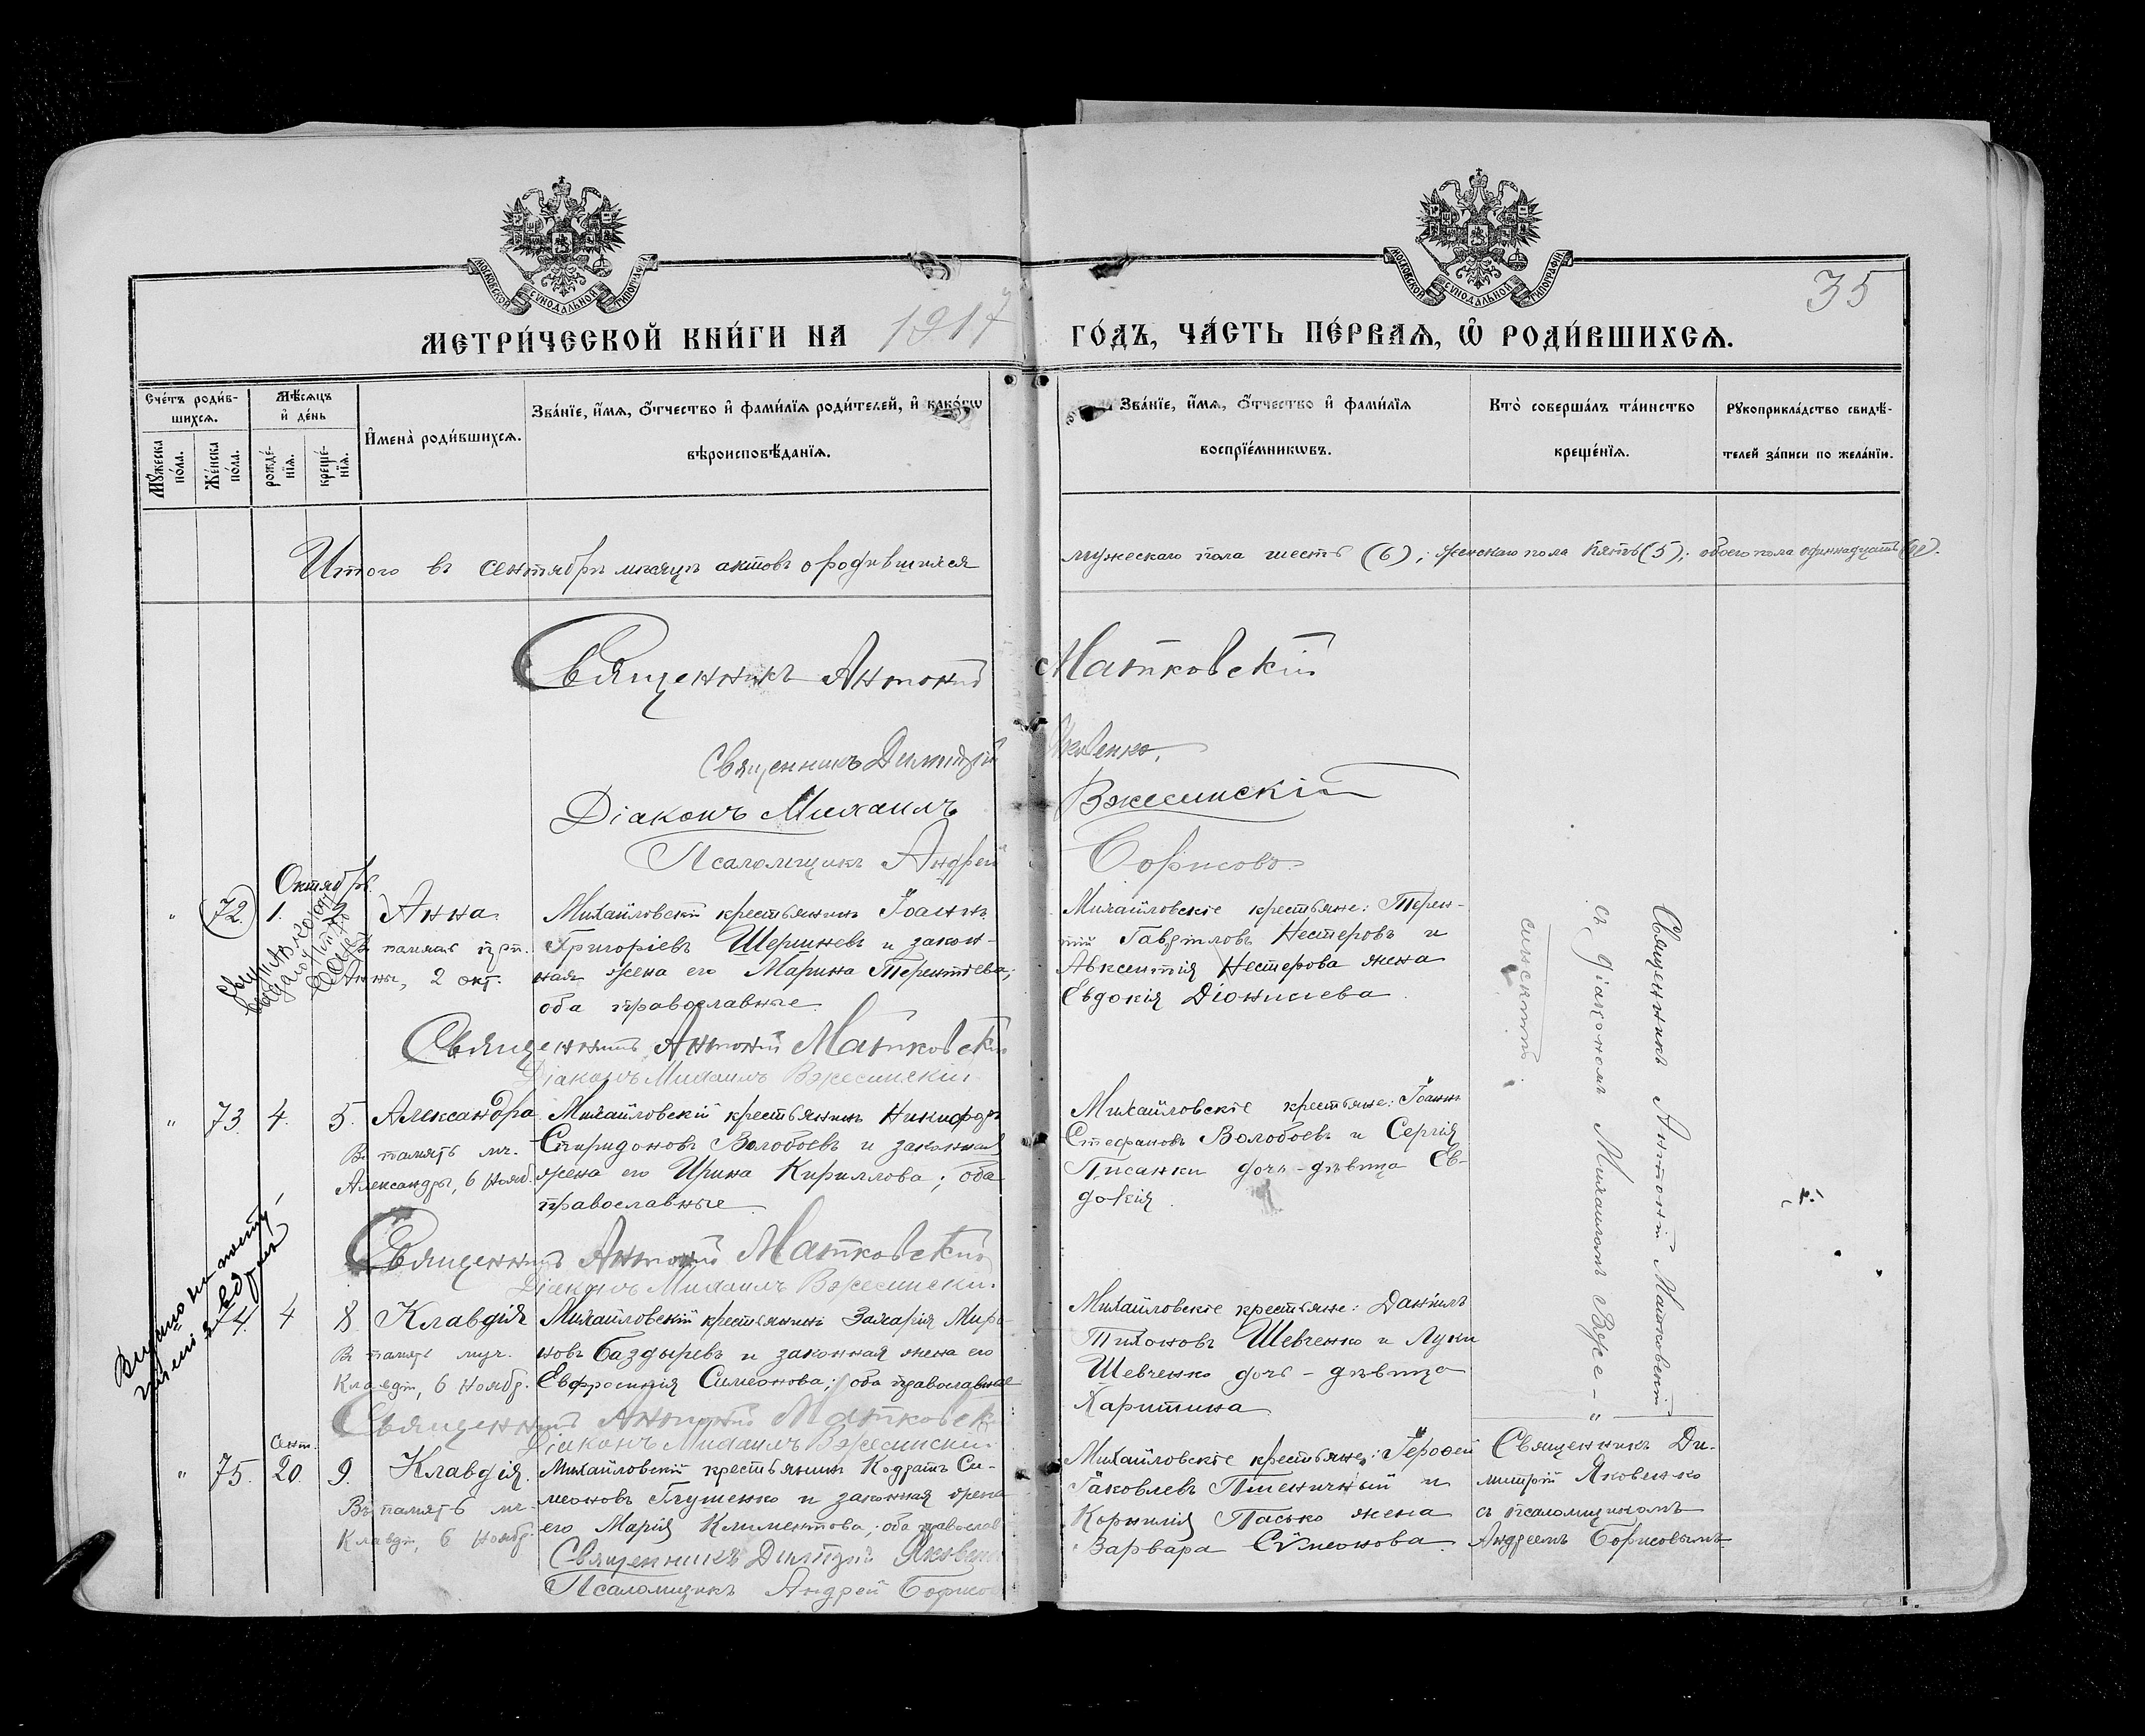 МОСКОВСКОЙ СѴНОДАЛЬНОЙ ТИПОГРАФІИ
МОСКОВСКОЙ СѴНОДАЛЬНОЙ ТИПОГРАФІИ
35
МЕТРИ́ЧЕСКОЙ КНИ́ГИ НА 1917 ГО́ДЪ, ЧА́СТЬ ПЕ́РВАѦ, Ѡ҆ РОДИ́ВШИХСѦ.
Сче́тъ роди́в-
шихсѧ.
Мꙋ́жеска по́ла.
Же́нска по́ла.
Мѣ́сѧцъ
и҆ де́нь
рожде́-
нїѧ.
креще́-
нїѧ.
И҆мена̀ роди́вшихсѧ.
Зва́нїе, и҆́мѧ, ѻ҆́тчество и҆ фами́лїѧ роди́телей, и҆ како́гѡ
вѣроисповѣ́данїѧ.
Зва́нїе, и҆́мѧ, ѻ҆́тчество и҆ фами́лїѧ
воспрїе́мникѡвъ.
Кто̀ соверша́лъ та́инство
креще́нїѧ.
Рꙋкоприкла́дство свидѣ́-
телей за́писи по жела́нїю.
Итого въ сентябрѣ мѣсяцѣ актовъ о родившихся мужескаго пола шесть (6); женскаго пола пять (5); обоего пола одиннадцать
Священникъ Антоній Матковскій
Священникъ Димитрій Яковенко
Діаконъ Михаилъ Вжесинскій
Псаломщикъ Андрей Борисовъ
Октябрь
" 72 1. 2 Анна
память прп.
Анны, 2 окт.
Михайловскій крестьянинъ Іоаннъ
Григоріевъ Шершневъ и закон-
ная жена его Марина Терентіева;
оба православные
Михайловскіе крестьяне: Терен-
тій Гавріиловъ Нестеровъ и
Авксентія Нестерова жена
Евдокія Діонисіева
Священникъ Антоній Матковскій
съ діакономъ Михаиломъ Вже-
синскимъ.
Священникъ Антоній Матковскій
Діаконъ Михаилъ Вжесинскій
" 73 4. 5. Александра
Въ память мч.
Александры, 6 Нояб.
Михайловскій крестьянинъ Никифоръ
Спиридоновъ Волобоевъ и законная
жена его Ирина Кириллова; оба
православные
Михайловскіе крестьяне: Іоаннъ
Стефановъ Волобоевъ и Сергія
Писанки дочь-дѣвица Ев-
докія
Священникъ Антоній Матковскій
Діаконъ Михаилъ Вжесинскій.
4 8 Клавдія
Въ память муч.
Клавдіи, 6 Ноябр.
Михайловскій крестьянинъ Захарія Миро-
новъ Баздыревъ и законная жена его
Евфросинія Симеонова; оба православные
Михайловскіе крестьяне: Даніилъ
Тихоновъ Шевченко и Луки
Шевченко дочь-дѣвица
Харитина
Священникъ Антоній Матковскій
Діаконъ Михаилъ Вжесинскій.
Сент.
" 75. 20. 9. Клавдія.
Въ память мч.
Клавдіи, 6 Ноябр.
Михайловскій крестьянинъ Кодратъ Си-
меоновъ Глущенко и законная жена
его Марія Климентова; оба православ
Михайловскіе крестьяне: Іероѳей
Іаковлевъ Пшеничный и
Корнилія Пасько жена
Варвара Сѵмеонова
Священникъ Ди-
митрій Яковенко
съ псаломщикомъ
Андреемъ Борисовымъ
Священникъ Димитрій Яковенко
Псаломщикъ Андрей Борисов